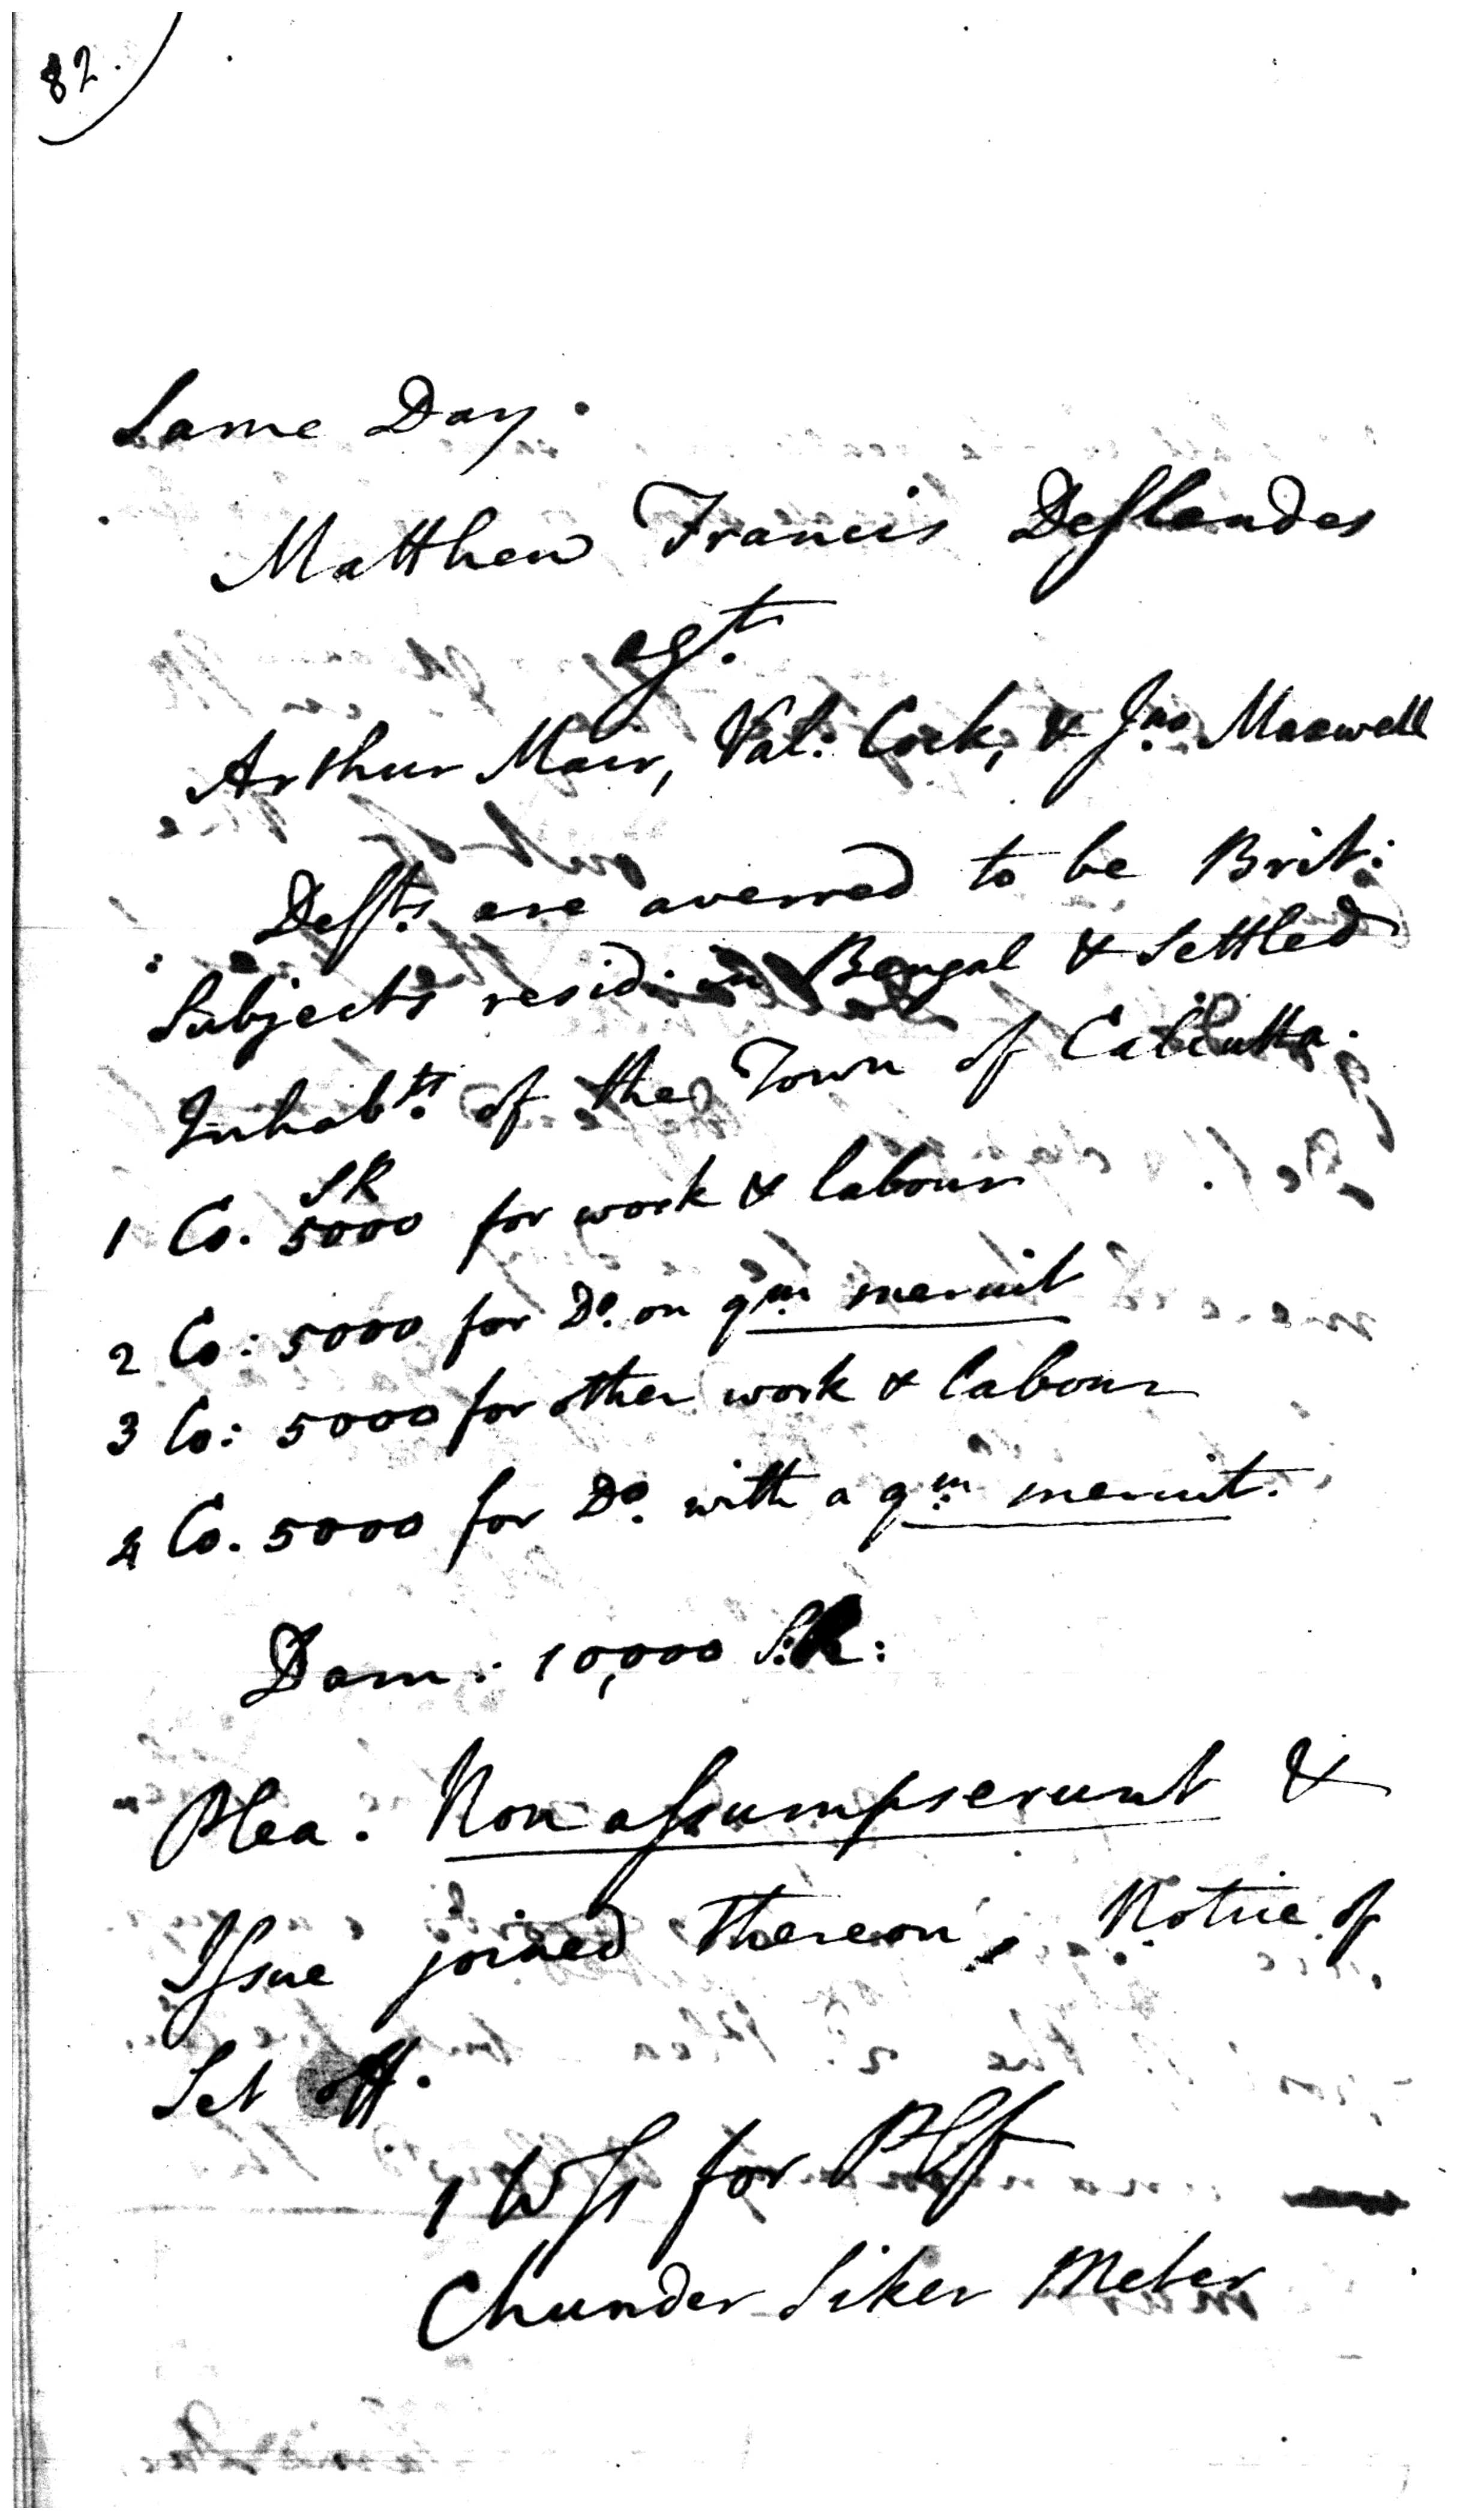 82.
Same Day.
Matthew Francis Deslandes
agt.
Arthur Mair, Val: Cock, & Jno Maxwell
Defts. are averred to be Brit:
Subjects resid: in Bengal & settled
Inhabts. of the Town of Calcutta.
1 Co. SR 5000 for work & labour
2 Co: 5000 for Do. on qm. meruit
3 Co: 5000 for other work & labour
4 Co. 5000 for Do. with a qm. meruit.
Dam: 10,000 S:R:
Plea. Non assumpserunt &
Issue joined thereon, Notice of
Set off.
1 Wss for Plf
Chunder Siker Meter